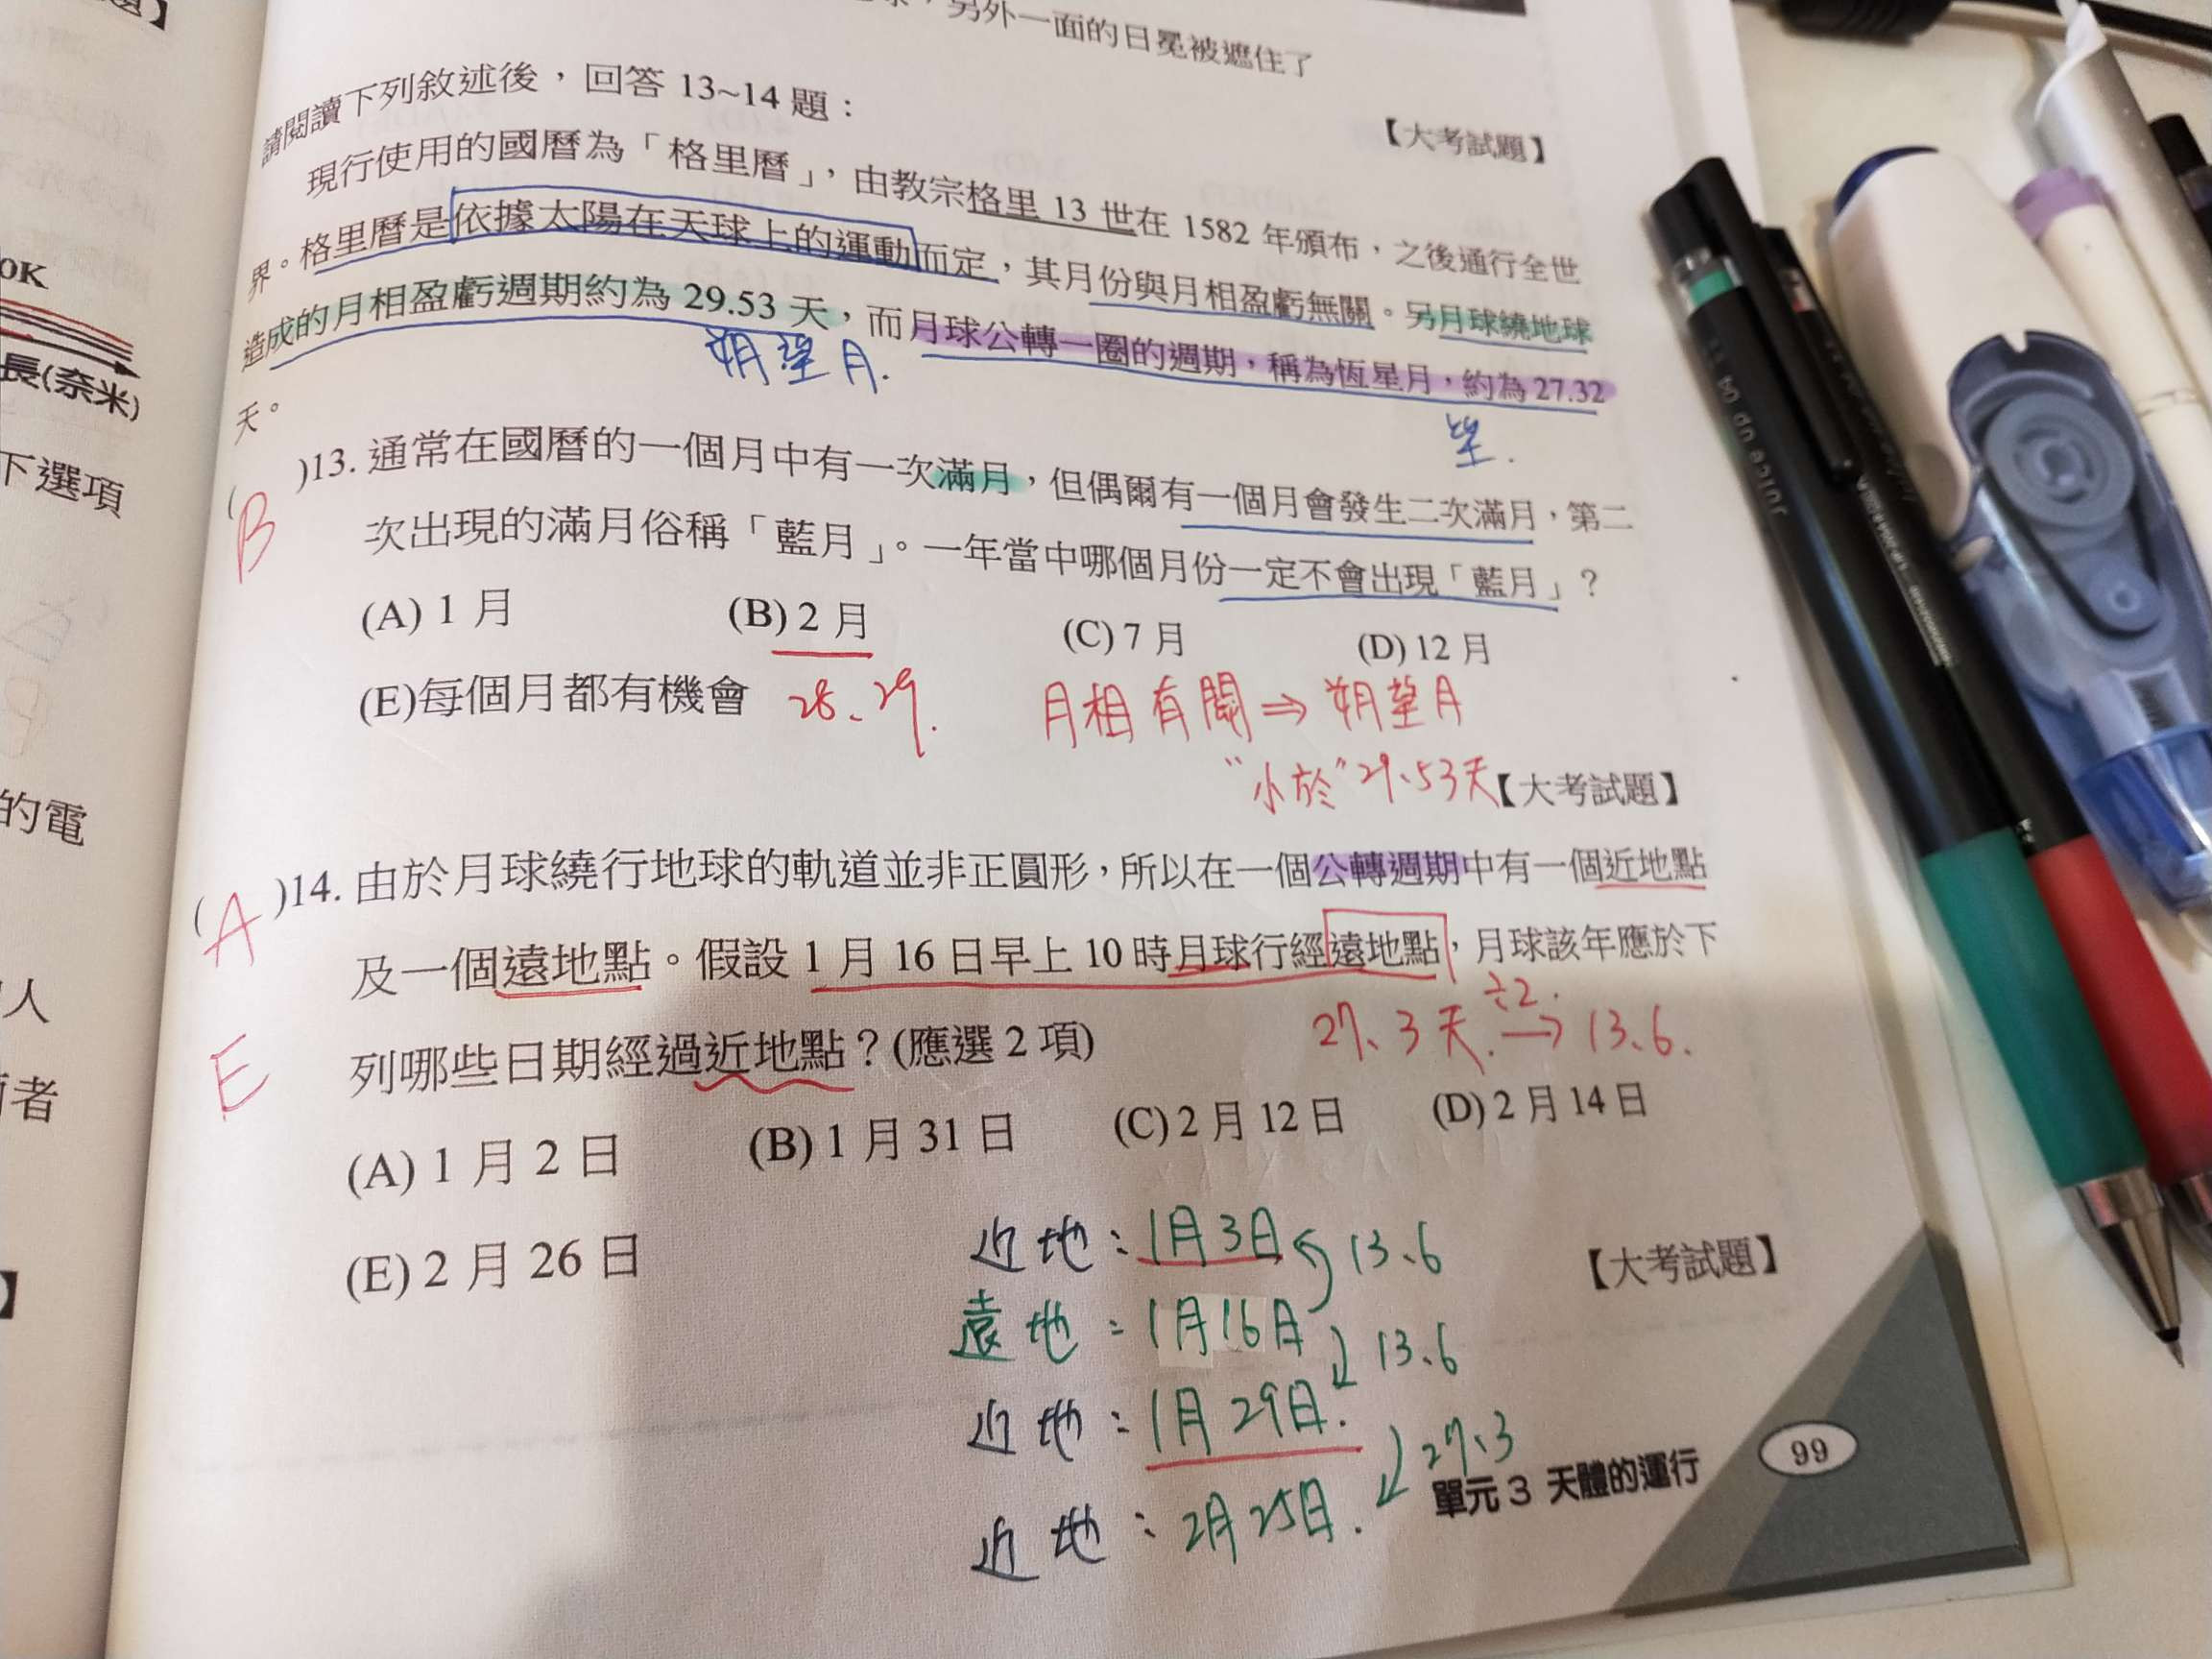 題】
另外一面的日冕被遮住了
請閱讀下列敘述後，回答 13~14 題：
【大考試題】
現行使用的國曆為「格里曆」，由教宗格里 13 世在 1582 年頒布，之後通行全世
界。格里曆是依據太陽在天球上的運動而定，其月份與月相盈虧無關。另月球繞地球
造成的月相盈虧週期約為 29.53 天，而月球公轉一圈的週期，稱為恆星月，約為 27.32
朔望月.
天。
( B )13. 通常在國曆的一個月中有一次滿月，但偶爾有一個月會發生二次滿月，第二
次出現的滿月俗稱「藍月」。一年當中哪個月份一定不會出現「藍月」？
(A) 1 月 (B) 2 月 (C) 7 月 (D) 12 月
(E)每個月都有機會 28、29. 月相有關⇒朔望月
"小於"29.53天【大考試題】
( A E )14. 由於月球繞行地球的軌道並非正圓形，所以在一個公轉週期中有一個近地點
及一個遠地點。假設 1 月 16 日早上 10 時月球行經遠地點，月球該年應於下
27.3天. ÷2. → 13.6.
列哪些日期經過近地點？(應選 2 項)
(A) 1 月 2 日 (B) 1 月 31 日 (C) 2 月 12 日 (D) 2 月 14 日
(E) 2 月 26 日
近地：1月3日 13.6
【大考試題】
遠地：1月16日 13.6
近地：1月29日. 27.3
近地：2月25日.
單元 3 天體的運行 99
OK
長(奈米)
下選項
的電
人
者
】